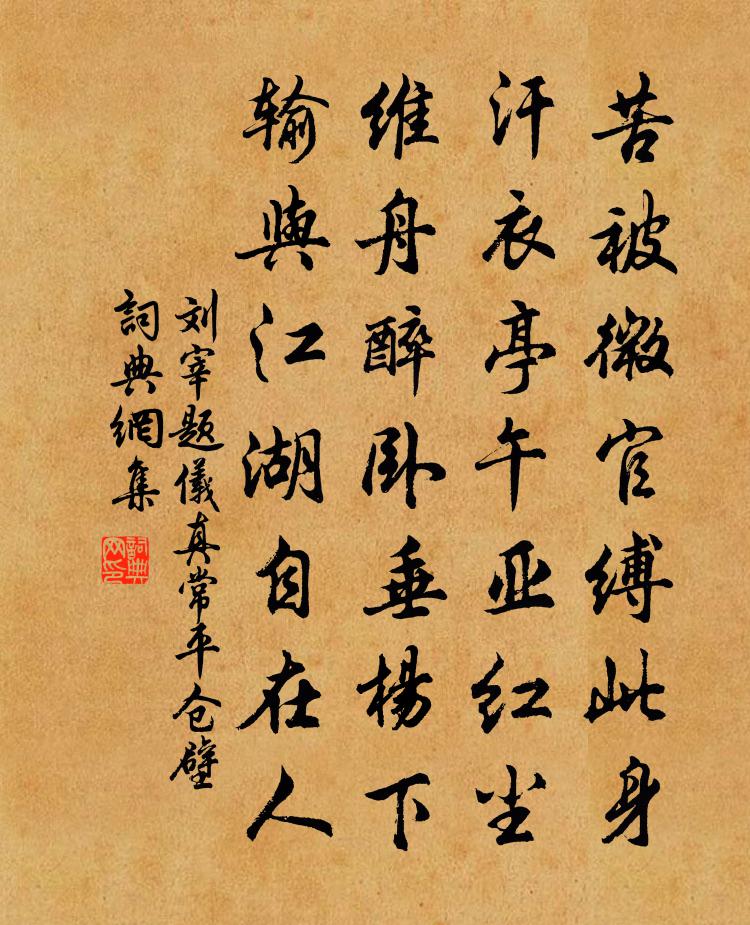 苦被微官缚此身
汗衣亭午亚红尘
维舟醉卧垂杨下
输与江湖自在人
刘宰题儀真常平仓壁
詞典網集
詞典网印